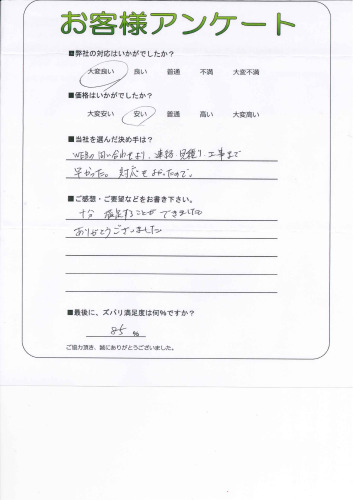 お客様アンケート
■弊社の対応はいかがでしたか？
大変良い 良い 普通 不満 大変不満
■価格はいかがでしたか？
大変安い 安い 普通 高い 大変高い
■当社を選んだ決め手は？
WEBの問い合わせより、連絡、見積り、工事まで
早かった。対応もよかったので。
■ご感想・ご要望などをお書き下さい。
十分 満足することができました
ありがとうございました
■最後に、ズバリ満足度は何%ですか？
85 %
ご協力頂き、誠にありがとうございました。